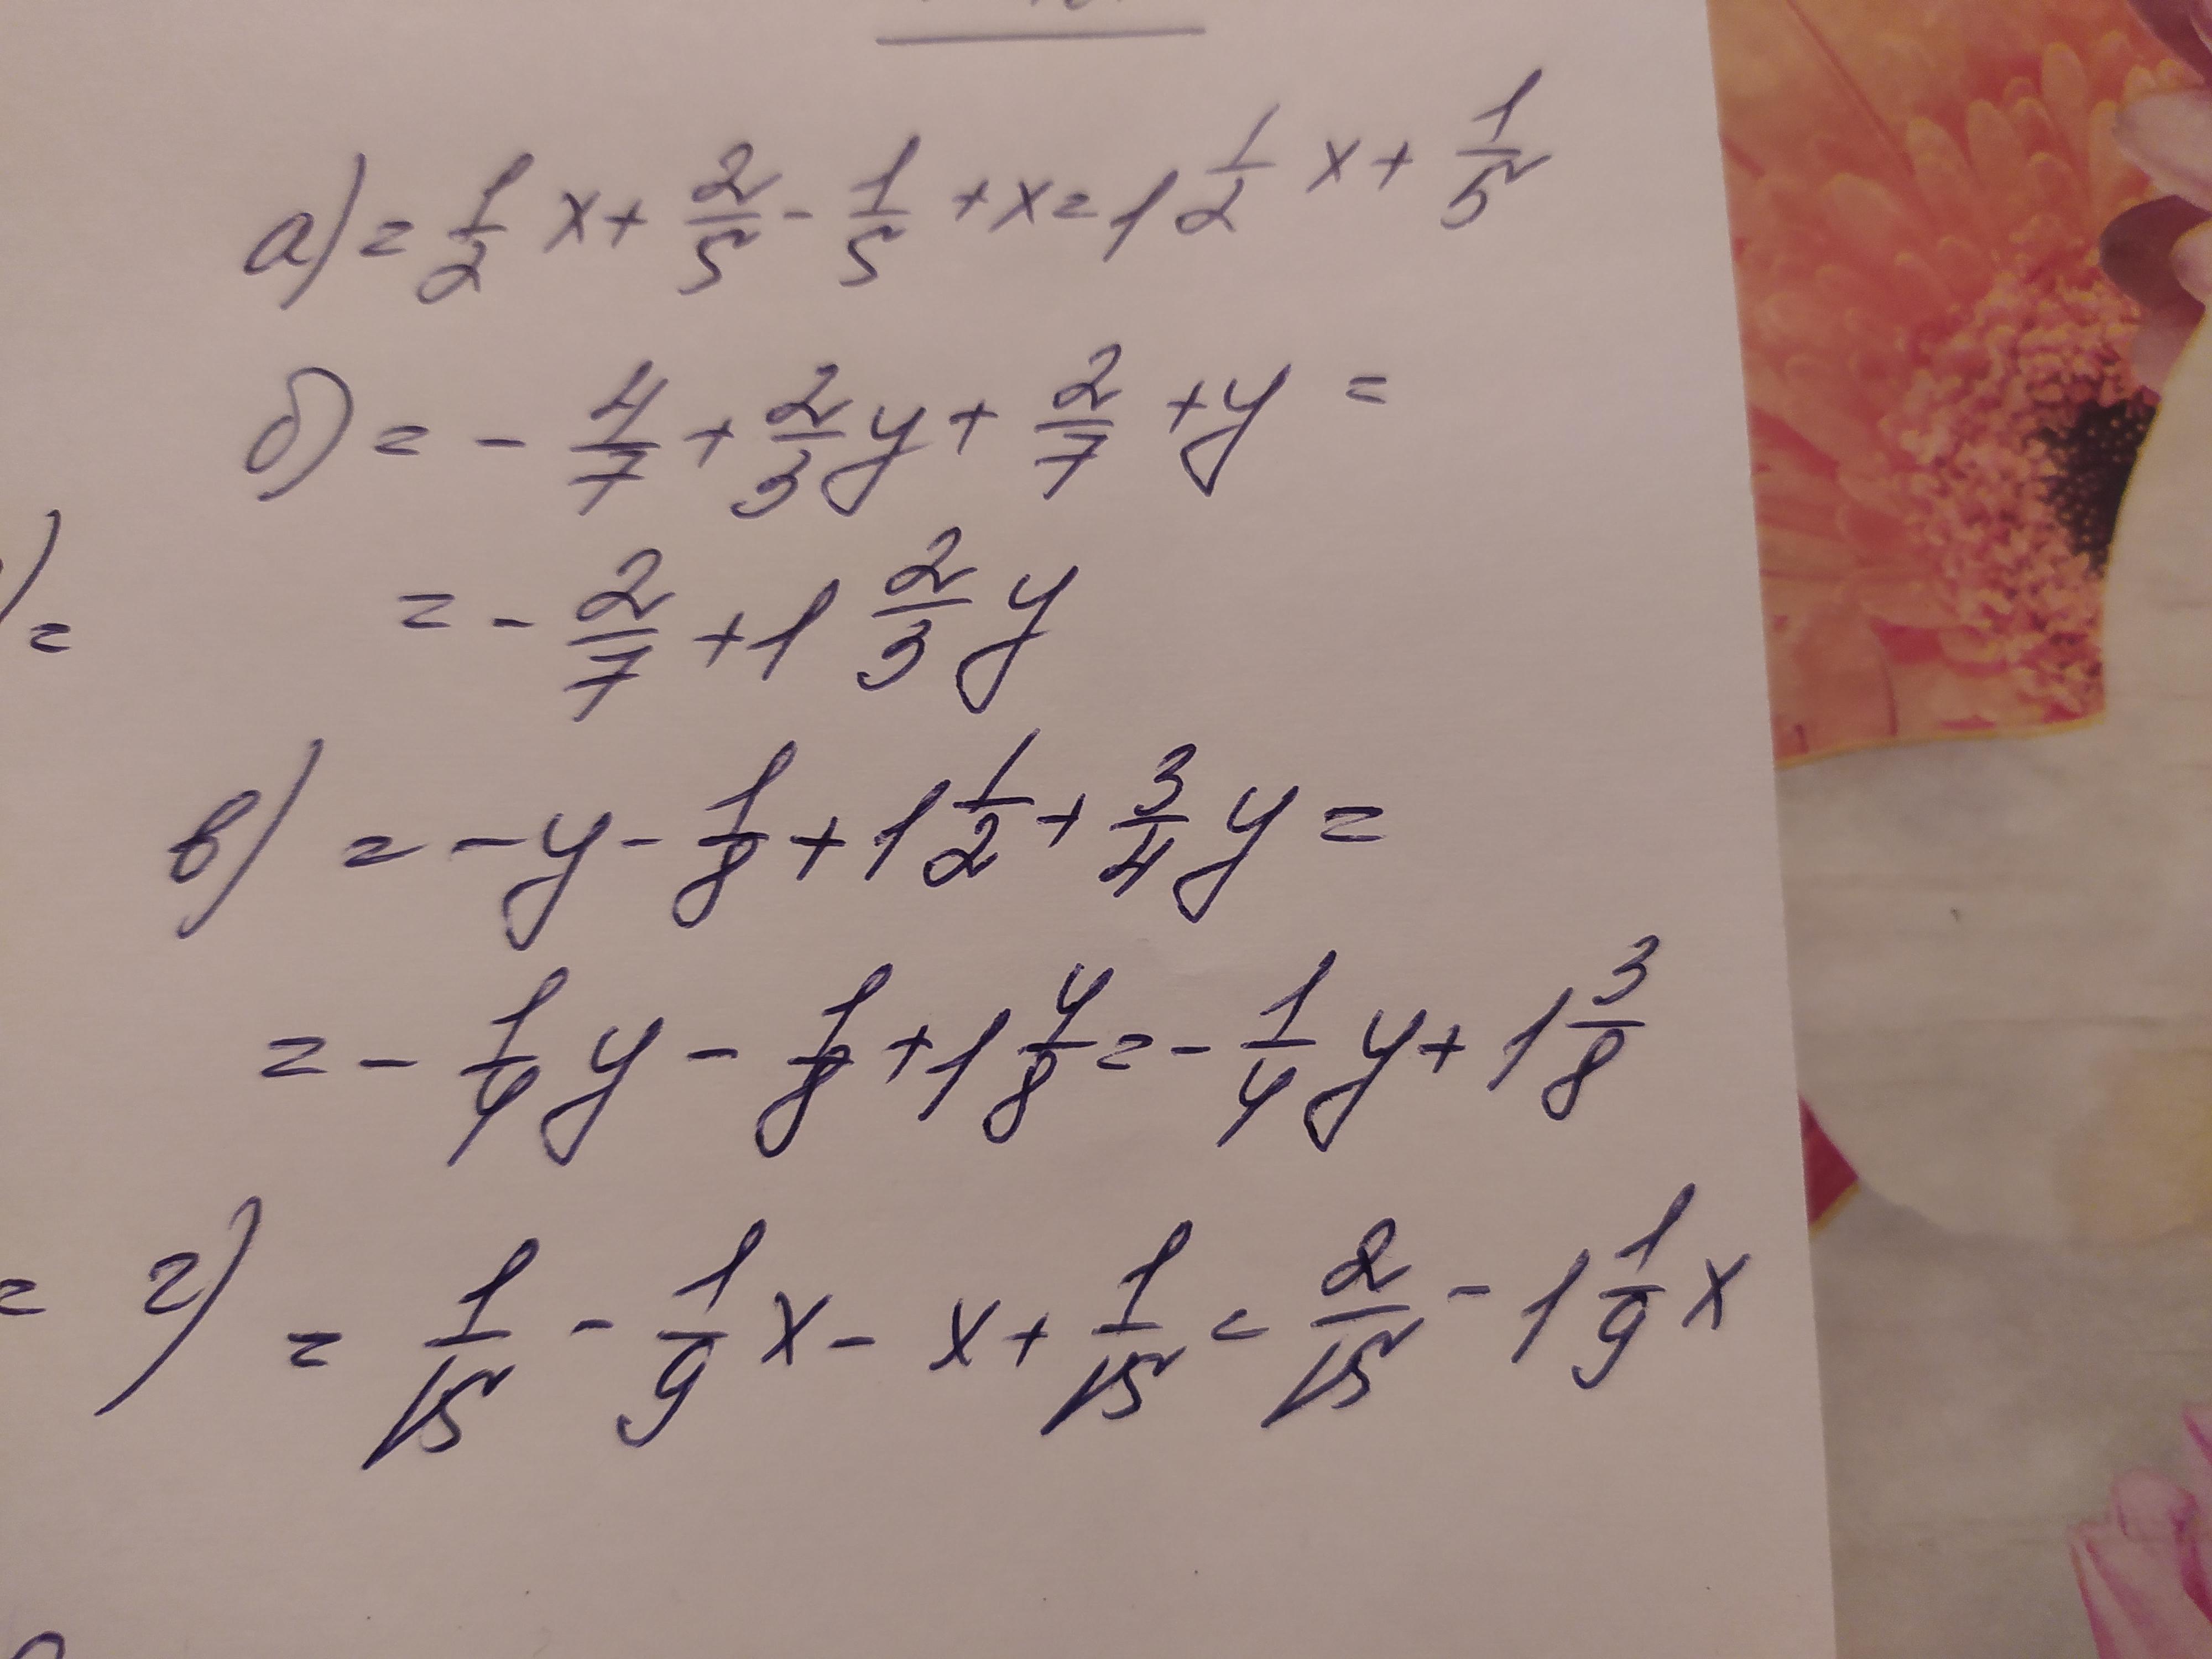 а) = 1/2 x + 2/5 - 1/5 + x = 1 1/2 x + 1/5
б) = - 4/7 + 2/3 y + 2/7 + y =
= - 2/7 + 1 2/3 y
) =
в) = - y - 1/8 + 1 1/2 + 3/4 y =
= - 1/4 y - 1/8 + 1 4/8 = - 1/4 y + 1 3/8
= г) = 1/15 - 1/9 x - x + 1/15 = 2/15 - 1 1/9 x